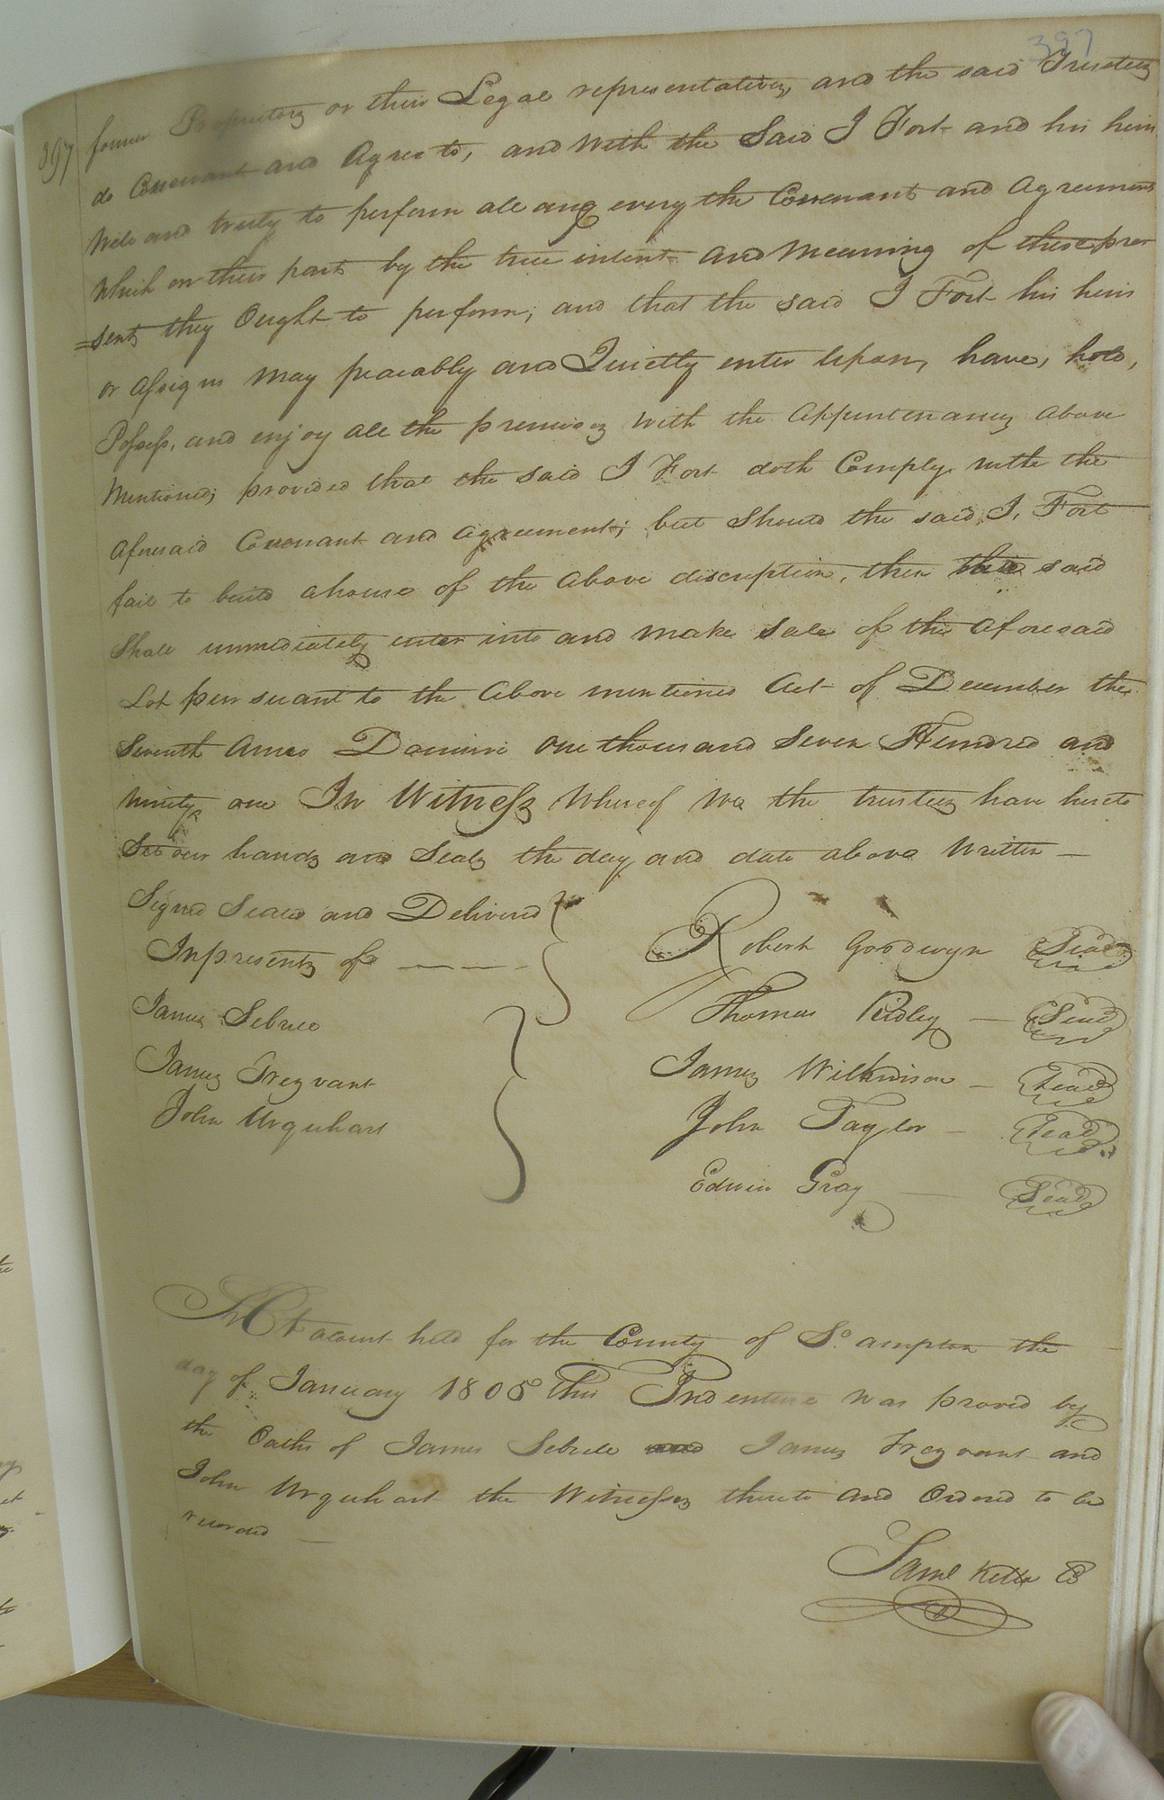 397
397
former Proprietors or their Legal representatives, and the said Trustees
do Covenant and Agree to, and with the Said J Fort and his heirs
Well and truly to perform all and every the Covenant and Agreements
Which on their part by the true intent and Meaning of these pre
=sents they Ought to perform; and that the said J Fort his heirs
or assigns may peaceably and Quietly enter Upon, have, hold,
Possess, and enjoy all the premises with the Appurtenances above
Mentioned; provided that the said J Fort doth Comply with the
aforesaid Covenant and agreement; but Should the said J, Fort
fail to build a house of the above discription, then the said
Shall immediately enter into and make Sale of the aforesaid
Lot persuant to the above mentioned Act of December the
Seventh Anno Domini One thousand Seven Hundred and
ninety one In Witness Whereof We the trustees have hereto
Set our hands and Seals the day and date above Written —
Signed Sealed and Delivered
In presents of ———
Robert Goodwyn Seal
James Sebree
Thomas Ridley — Seal
James Trezvant
James Wilkinson — Seal
John Urquhart
John Taylor — Seal
Edwin Gray — Seal
At a court held for the County of So. ampton the
day of January 1805 this Indenture was proved by
the Oaths of James Sebrele and James Trezvant and
John Urquhart the Witnesses thereto and Ordered to be
recorded —
Saml Kello